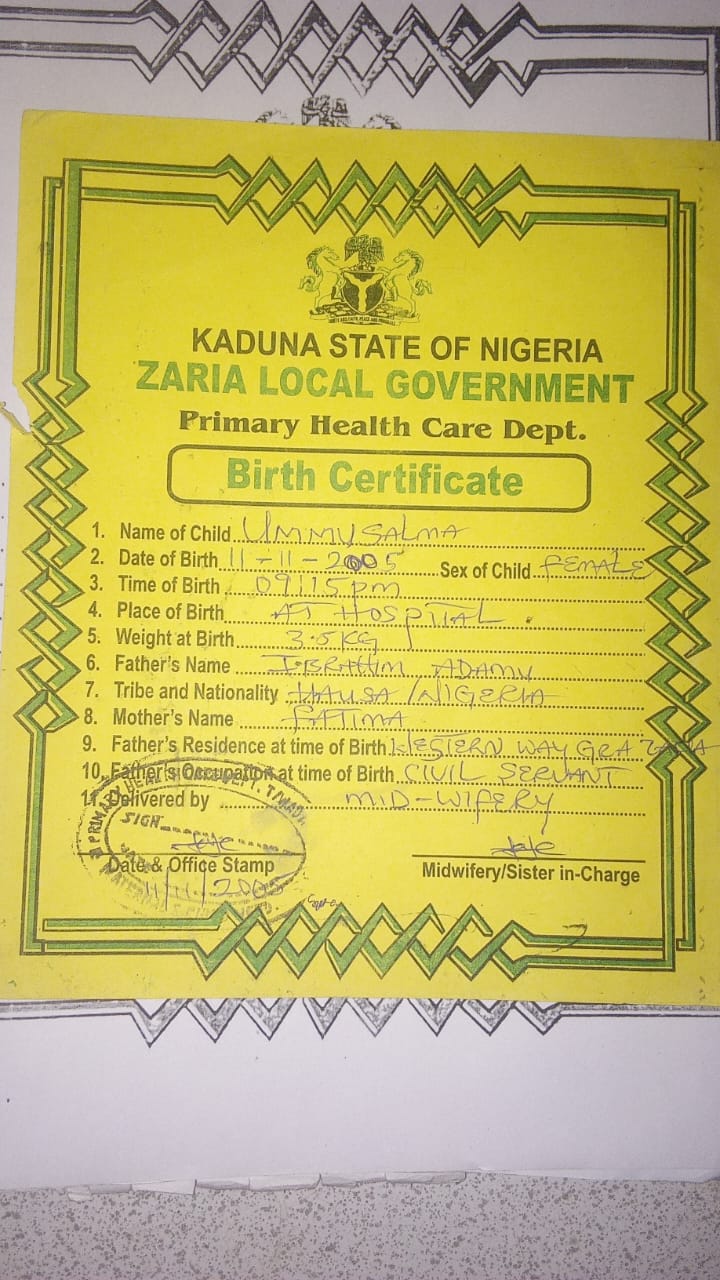 KADUNA STATE OF NIGERIA
ZARIA LOCAL GOVERNMENT
Primary Health Care Dept.
Birth Certificate
1. Name of Child UMMUSALMA
2. Date of Birth 11-11-2005 Sex of Child FEMALE
3. Time of Birth 09:15pm
4. Place of Birth AT HOSPITAL
5. Weight at Birth 3.5KG
6. Father's Name IBRAHIM ADAMU
7. Tribe and Nationality HAUSA/NIGERIA
8. Mother's Name FATIMA
9. Father's Residence at time of Birth WESTERN WAY GRA ZARIA
10. Father's Occupation at time of Birth CIVIL SERVANT
11. Delivered by MID-WIFERY
SIGN
Date & Office Stamp
11/11/2005
Midwifery/Sister in-Charge